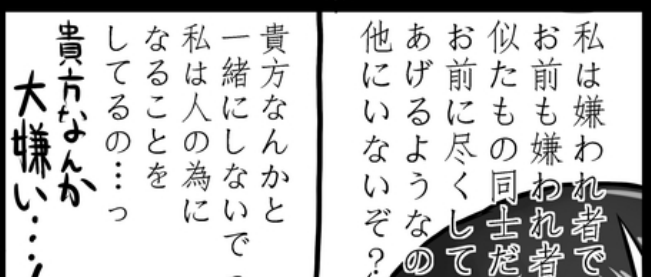 私は嫌われ者で
お前も嫌われ者
似たもの同士だ
お前に尽くして
あげるようなの
他にいないぞ?
貴方なんかと
一緒にしないで
私は人の為に
なることを
してるの…っ
貴方なんか
大嫌い…